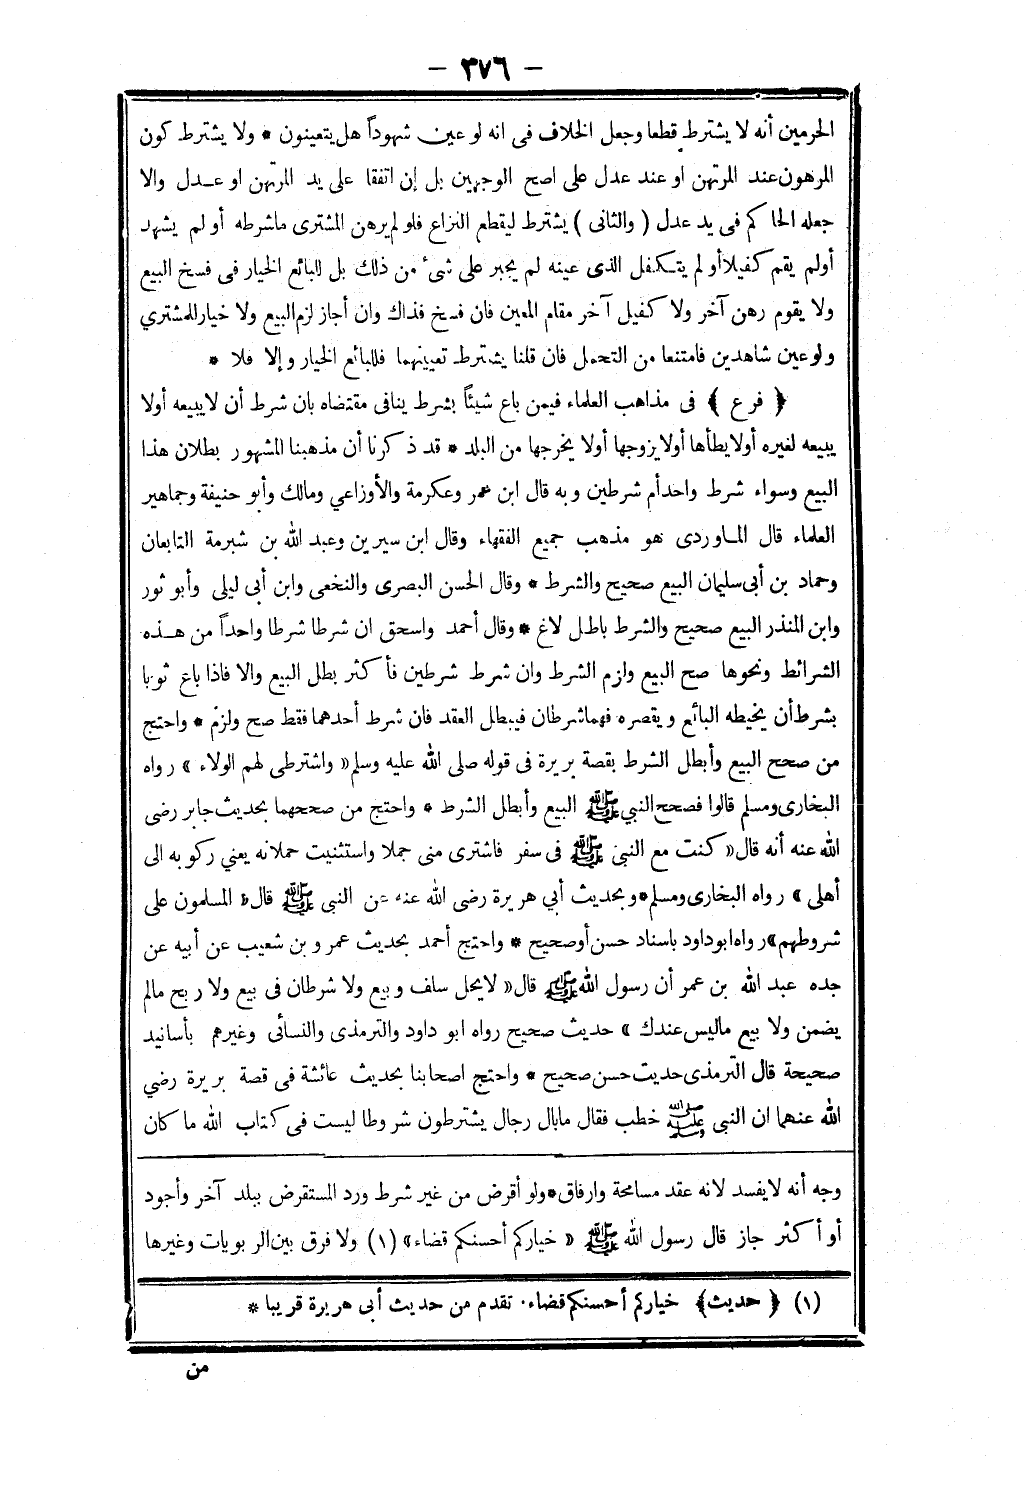 - ٣٧٦ -
الحرمين أنه لا يشترط قطعا وجعل الخلاف فى انه لو عين شهوداً هل يتعينون * ولا يشترط كون
المرهون عند المرتهن او عند عدل على اصح الوجهين بل إن اتفقا على يد المرتهن او عدل والا
جعله الحاكم فى يد عدل (والثانى) يشترط ليقطع النزاع فلو لم يرهن المشترى ماشرطه أو لم يشهد
أولم يقم كفيلا أو لم يتكفل الذى عينه لم يجبر على شئ من ذلك بل للبائع الخيار فى فسخ البيع
ولا يقوم رهن آخر ولا كفيل آخر مقام المعين فان فسخ فذاك وان أجاز لزم البيع ولا خيار للمشتري
ولو عين شاهدين فامتنعا من التحمل فان قلنا يشترط تعيينهما فللبائع الخيار وإلا فلا *
﴿ فرع ﴾ فى مذاهب العلماء فيمن باع شيئاً بشرط ينافى مقتضاه بان شرط أن لا يبيعه أولا
يبيعه لغيره أولا يطأها أولا يزوجها أولا يخرجها من البلد * قد ذكرنا أن مذهبنا المشهور بطلان هذا
البيع وسواء شرط واحدا أم شرطين وبه قال ابن عمر وعكرمة والأوزاعي ومالك وأبو حنيفة وجماهير
العلماء قال الماوردى هو مذهب جميع الفقهاء وقال ابن سيرين وعبد الله بن شبرمة التابعان
وحماد بن أبى سليمان البيع صحيح والشرط * وقال الحسن البصرى والنخعى وابن أبى ليلى وأبو ثور
وابن المنذر البيع صحيح والشرط باطل لاغ * وقال أحمد واسحق ان شرطا شرطا واحداً من هذه
الشرائط ونحوها صح البيع ولزم الشرط وان شرط شرطين فأكثر بطل البيع والا فاذا باع ثوبا
بشرط أن يخيطه البائع ويقصره فهما شرطان فيبطل العقد فان شرط أحدهما فقط صح ولزم * واحتج
من صحح البيع وأبطل الشرط بقصة بريرة فى قوله صلى الله عليه وسلم « واشترطى لهم الولاء » رواه
البخارى ومسلم قالوا فصحح النبي ﷺ البيع وأبطل الشرط * واحتج من صححهما بحديث جابر رضى
الله عنه أنه قال « كنت مع النبى ﷺ فى سفر فاشترى منى جملا واستثنيت حملانه يعني ركوبه الى
أهلى » رواه البخارى ومسلم * وبحديث أبي هريرة رضى الله عنه عن النبى ﷺ قال « المسلمون على
شروطهم » رواه ابو داود باسناد حسن أو صحيح * واحتج أحمد بحديث عمرو بن شعيب عن أبيه عن
جده عبد الله بن عمر أن رسول الله ﷺ قال « لا يحل سلف وبيع ولا شرطان فى بيع ولا ربح مالم
يضمن ولا بيع ماليس عندك » حديث صحيح رواه ابو داود والترمذى والنسائى وغيرهم بأسانيد
صحيحة قال الترمذى حديث حسن صحيح * واحتج اصحابنا بحديث عائشة فى قصة بريرة رضي
الله عنهما ان النبى ﷺ خطب فقال مابال رجال يشترطون شروطا ليست فى كتاب الله ما كان
وجه أنه لا يفسد لانه عقد مسامحة وارفاق * ولو أقرض من غير شرط ورد المستقرض ببلد آخر وأجود
أو أكثر جاز قال رسول الله ﷺ « خياركم أحسنكم قضاء » (١) ولا فرق بين الربويات وغيرها
(١) ﴿ حديث ﴾ خياركم أحسنكم قضاء. تقدم من حديث أبى هريرة قريبا *
من